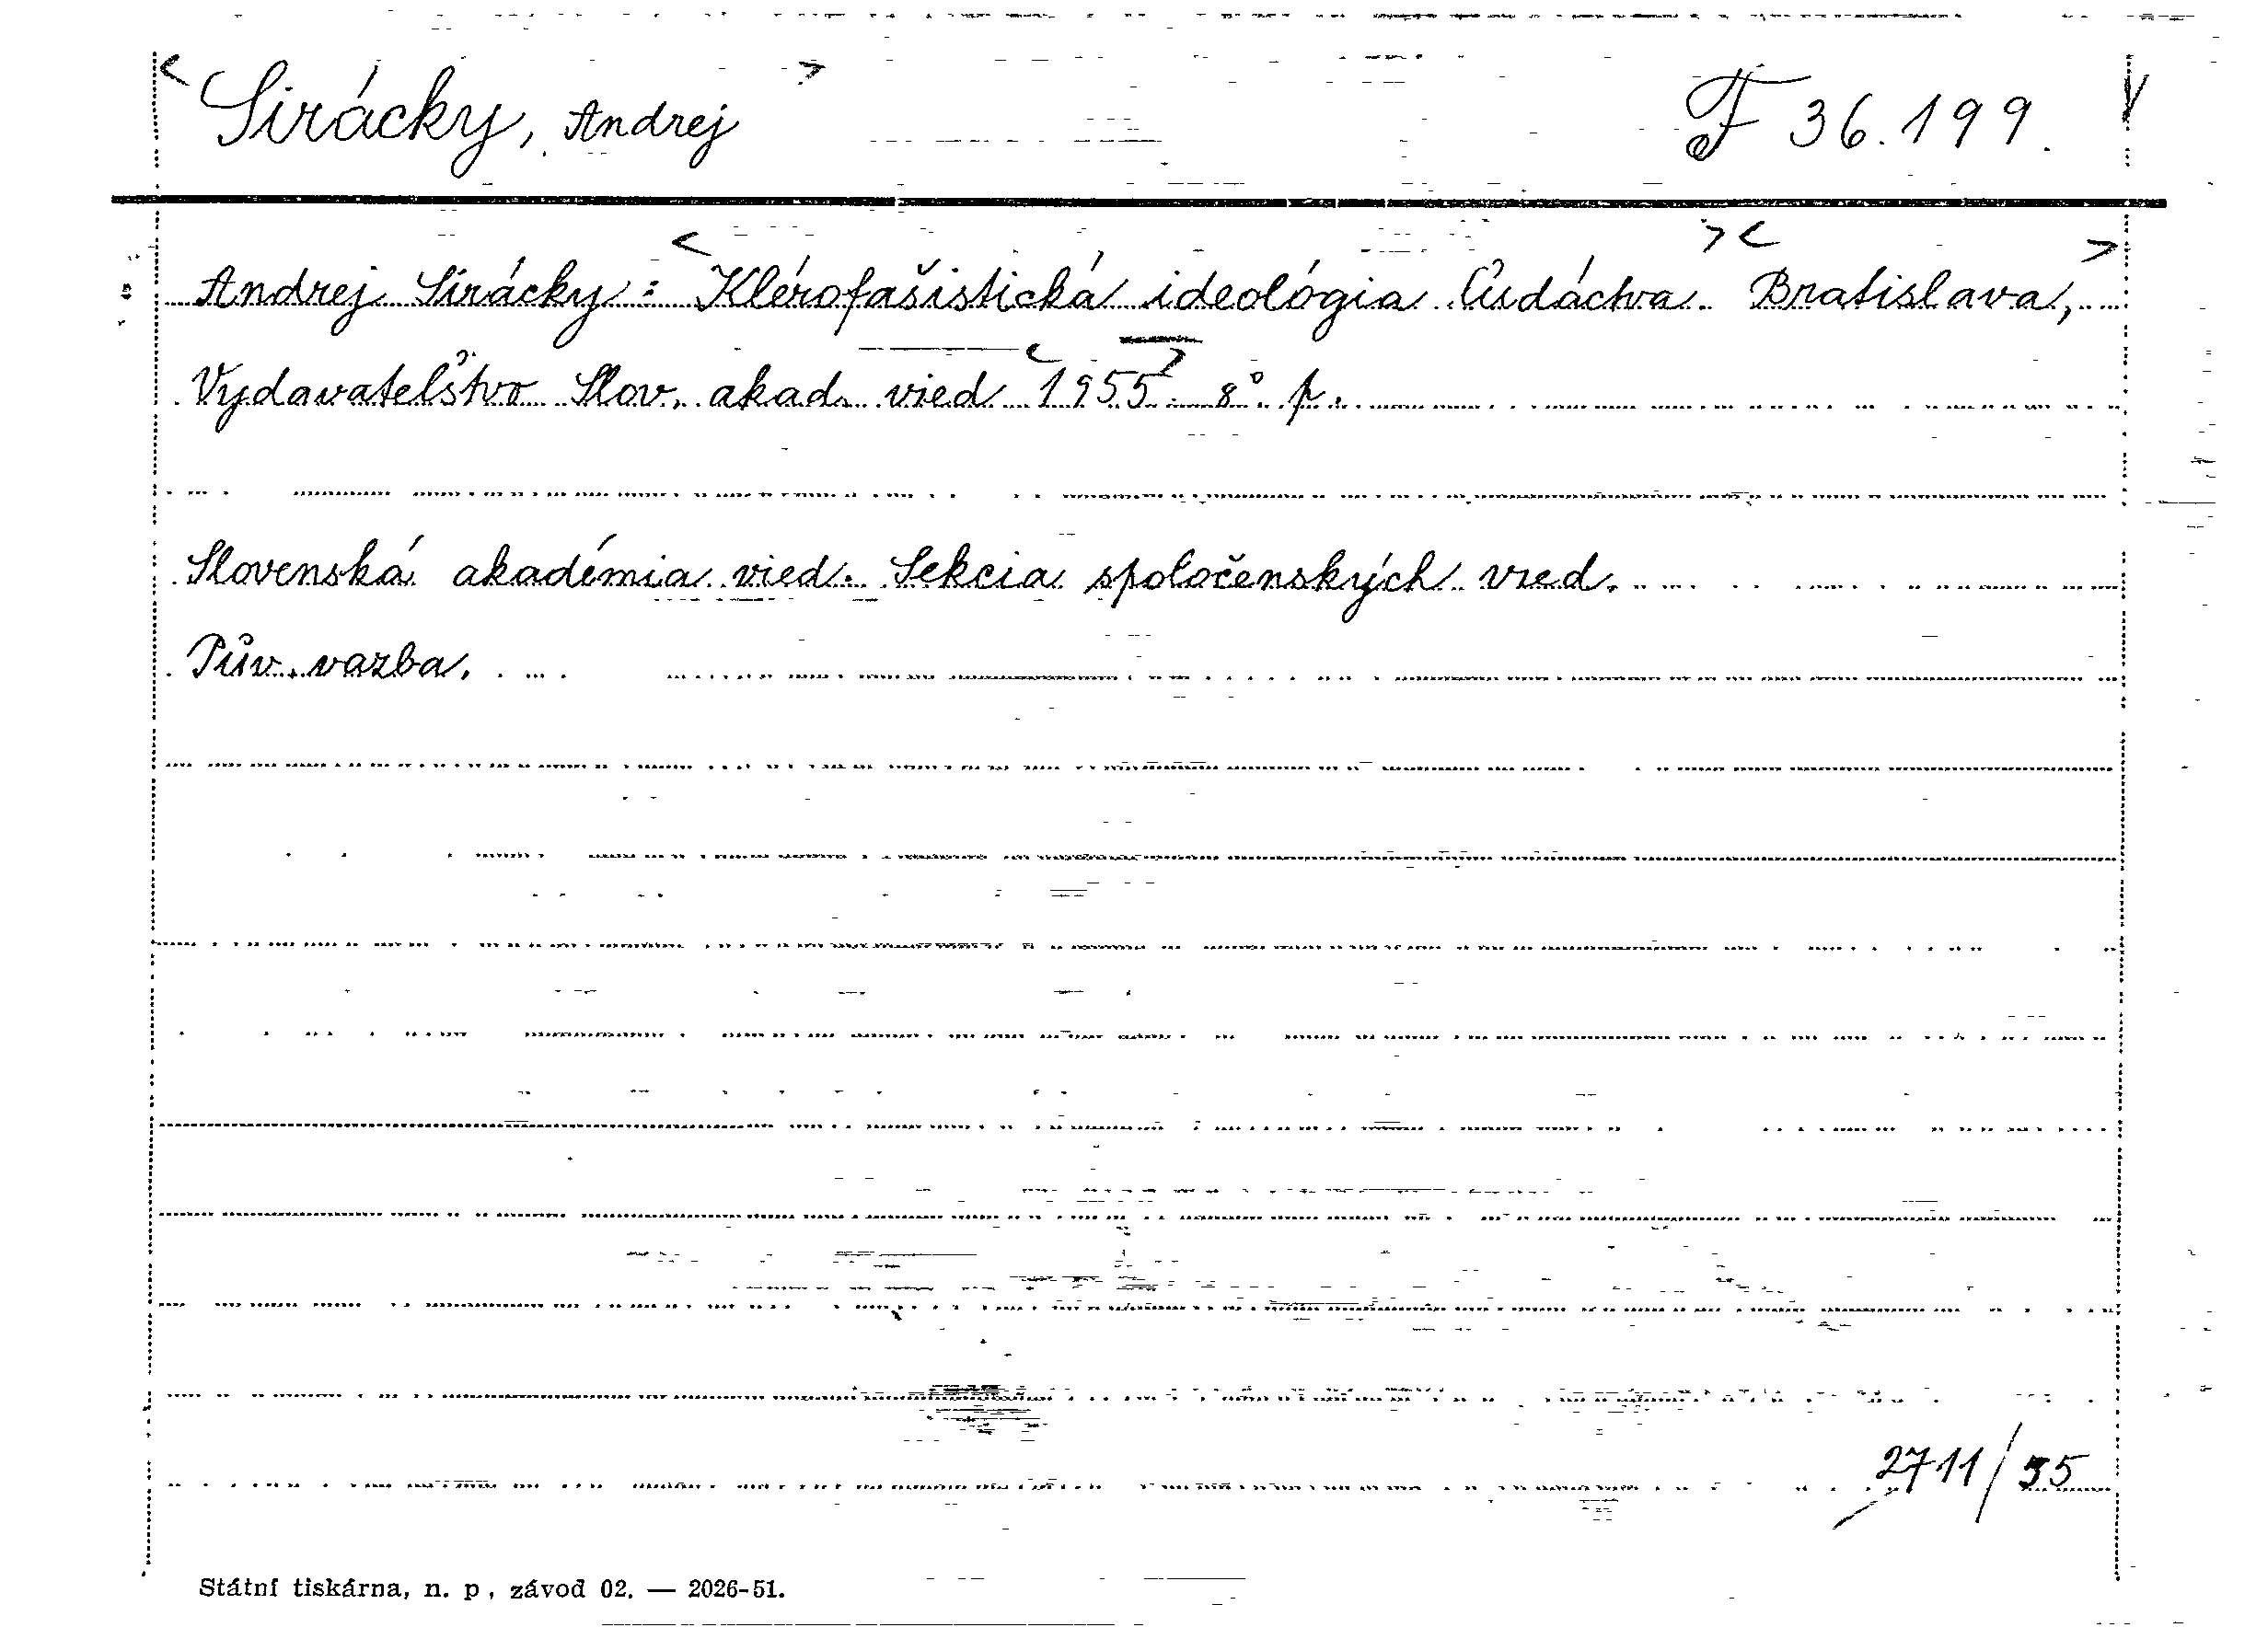 < Sirácky, Andrej > F 36.199.
Andrej Sirácky: < Klérofašistická ideológia ľudáctva. > < Bratislava, >
Vydavateľstvo Slov. akad. vied < 1955. > 8°. p.
Slovenská akadémia vied. Sekcia spoločenských vied.
Pův. vazba.
2711/55
Státní tiskárna, n. p., závod 02. — 2026-51.